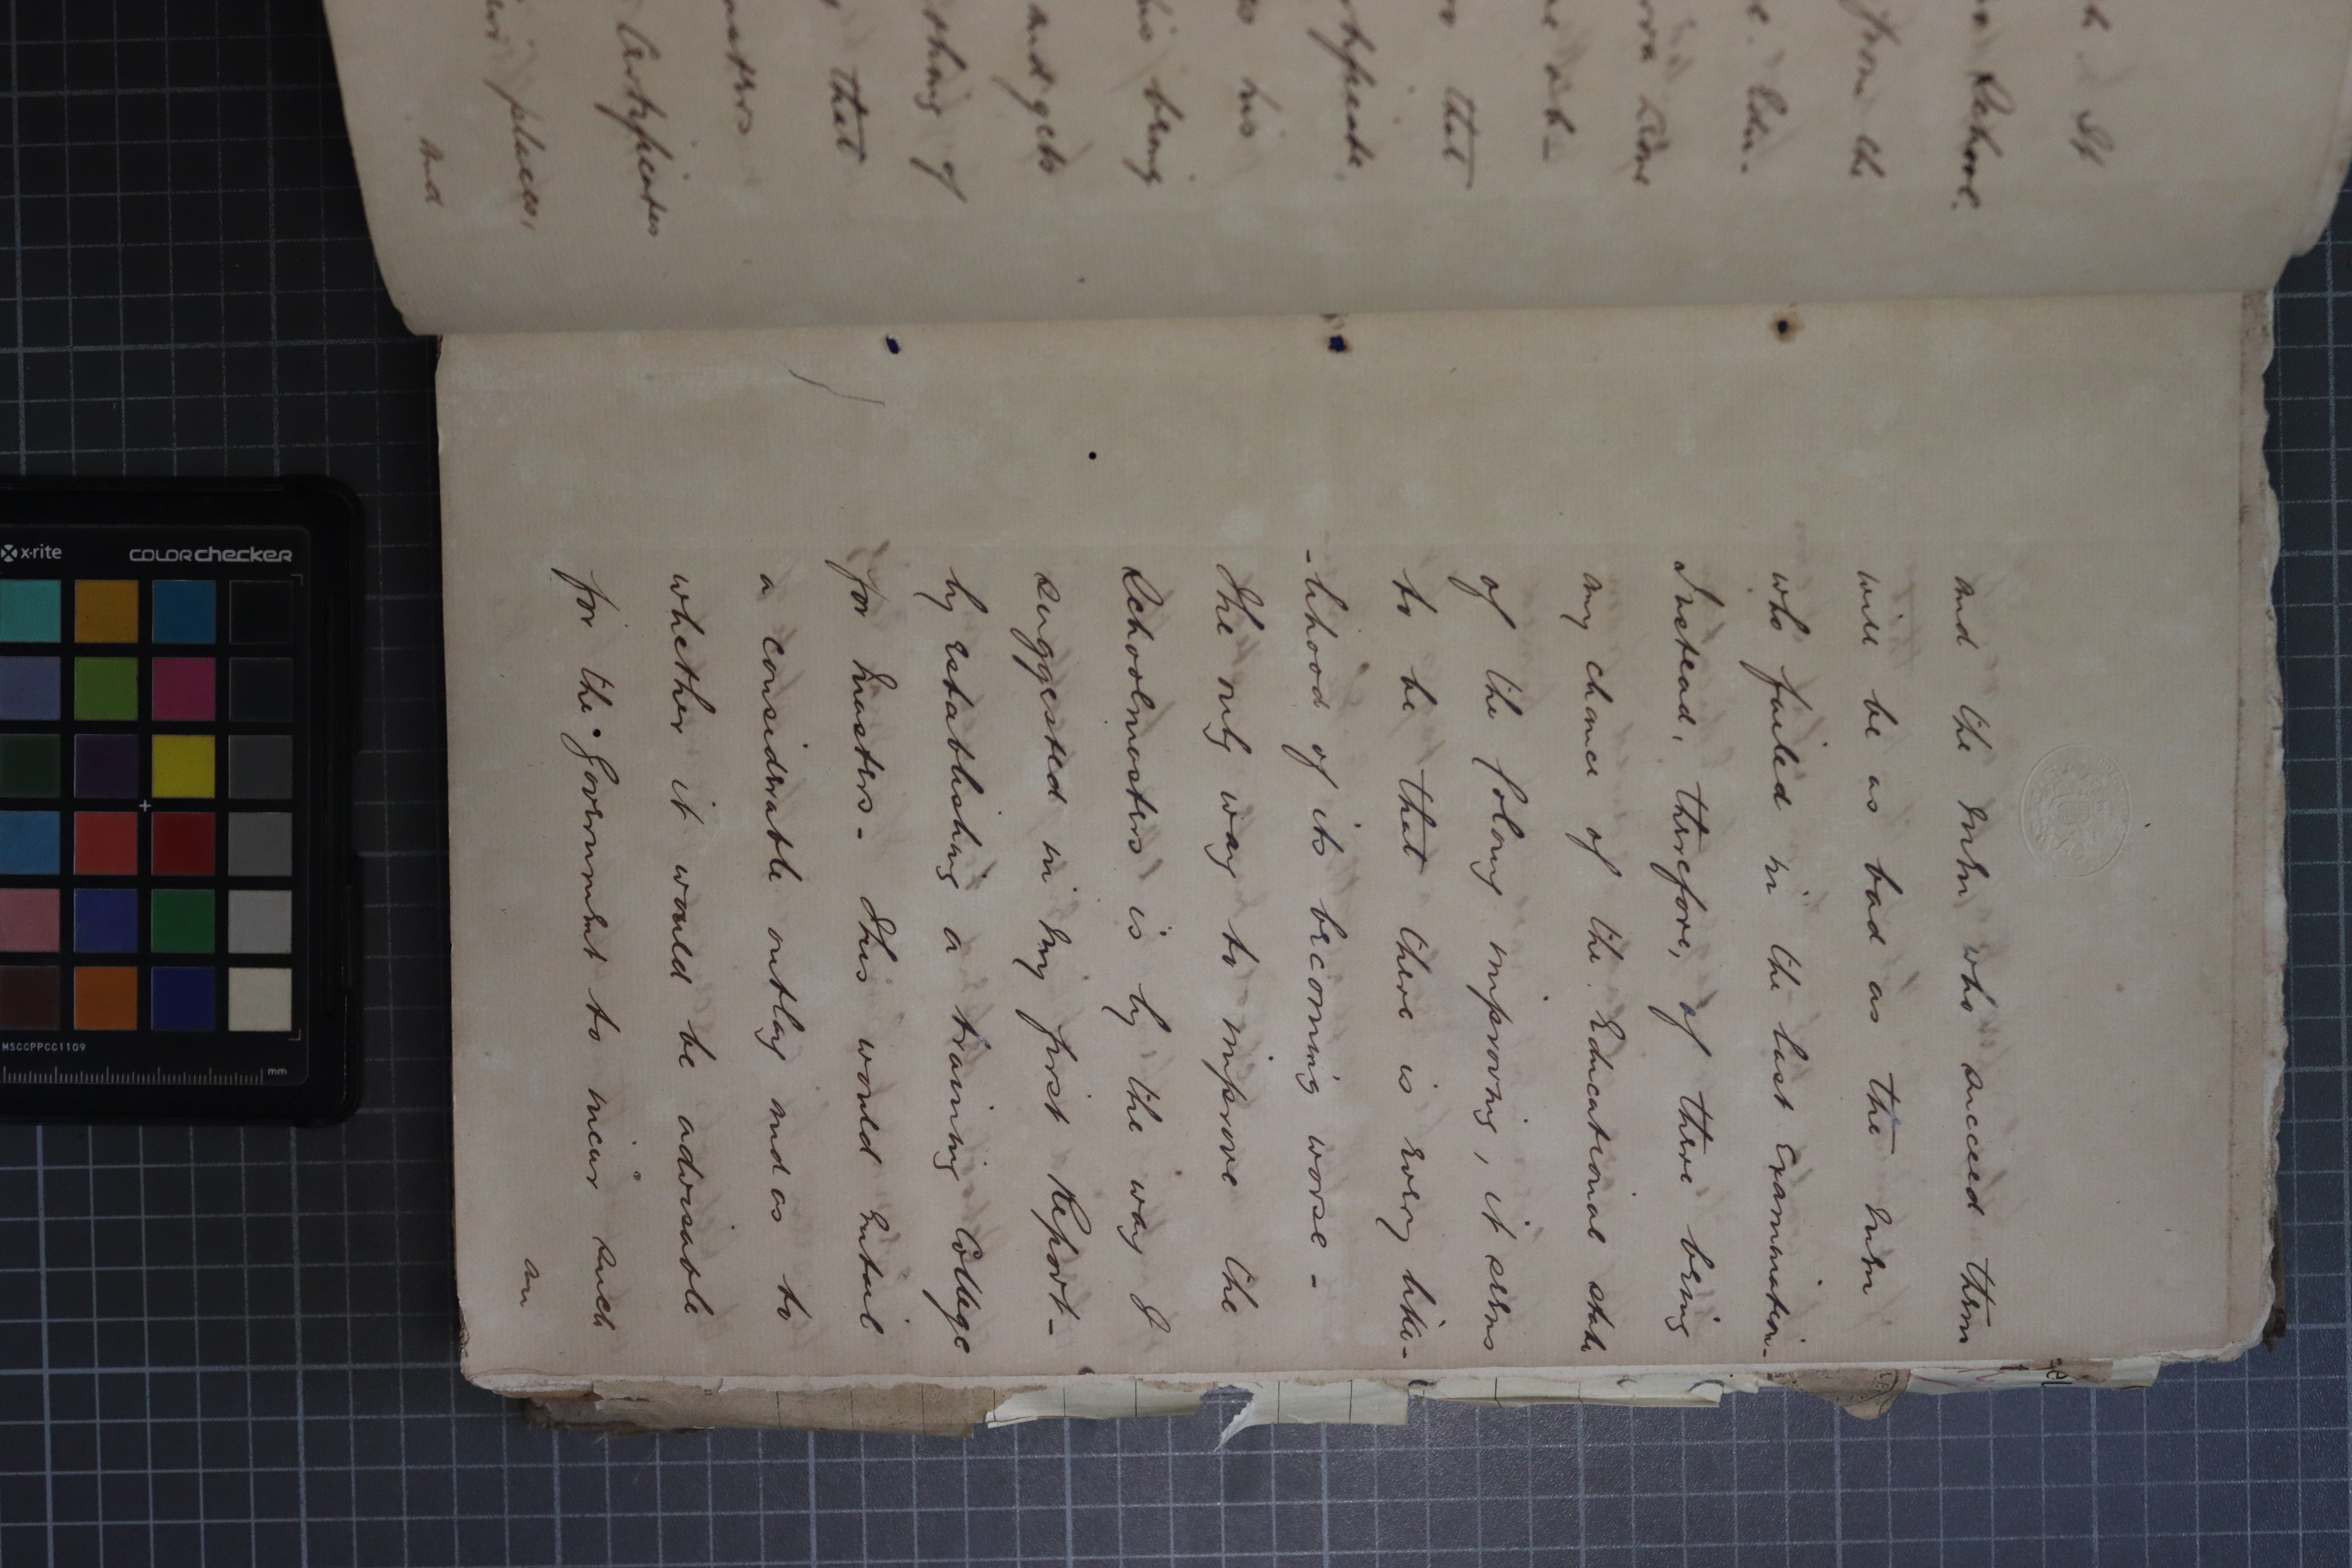 It
School.
from the
Edu-
time
that
his
his being
and gets
of
that
Certificates
places,
and
and the men who succeed them
will be as bad as the men
who failed in the last Examination-
Instead, therefore, of there being
any chance of the Educational state
of the Colony improving, it seems
to be that there is every like-
-lihood of its becoming worse-
The only way to improve the
Schoolmasters is by the way I
suggested in my first Report-
by establishing a training College
for Masters- This would entail
a considerable outlay and as to
whether it would be advisable
for the Government to incur such
an
x·rite
COLORchecker
MSCCPPCC1109
mm